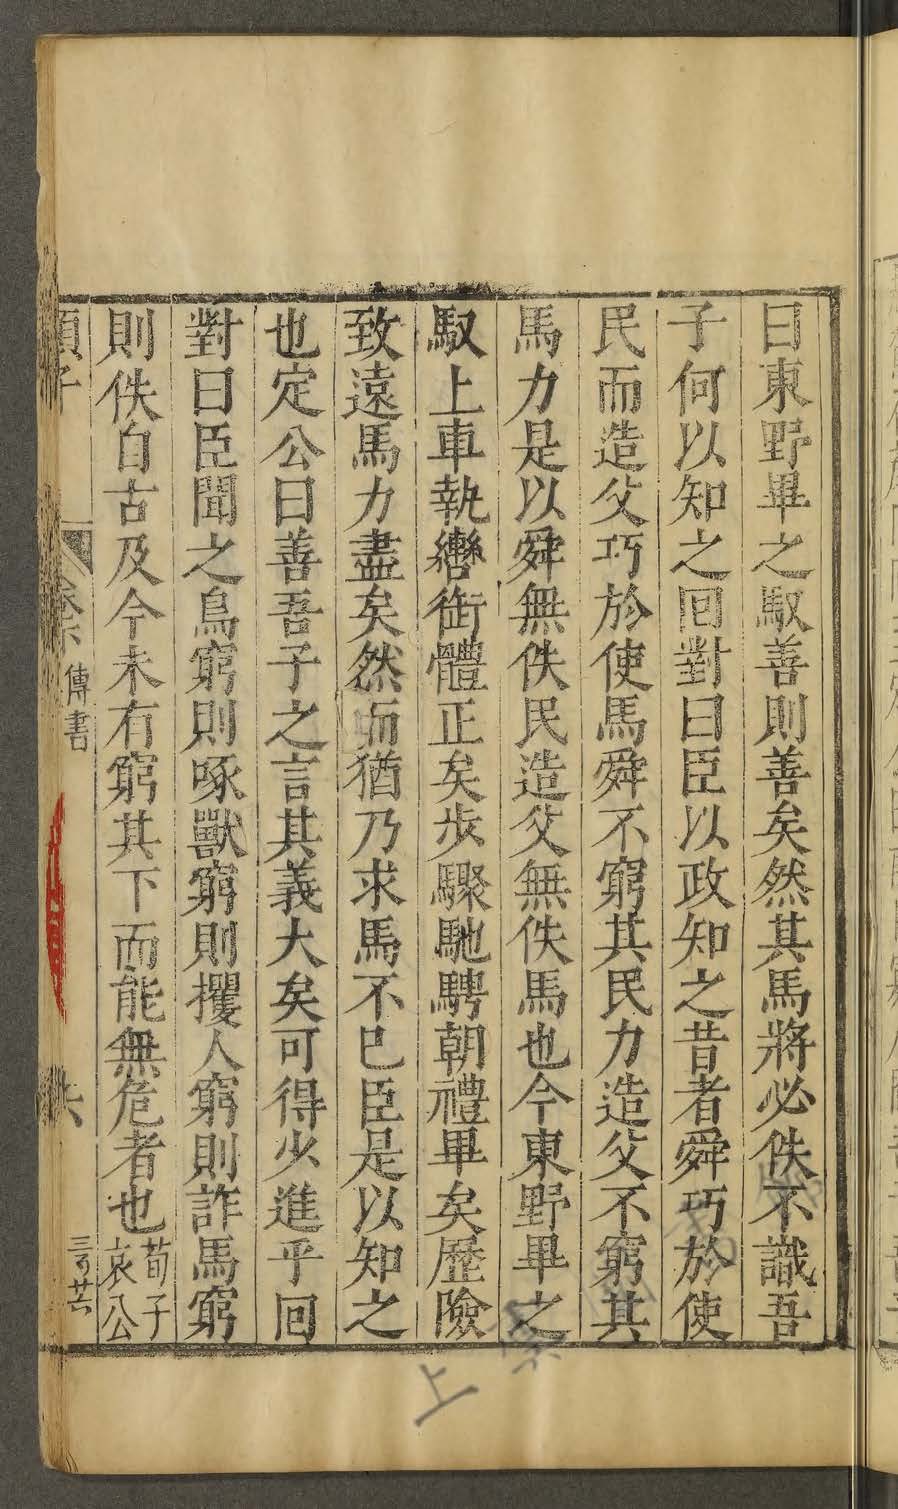 曰東野畢之馭善則善矣然其馬將必佚不識吾
子何以知之回對曰臣以政知之昔者舜巧於使
民而造父巧於使馬舜不窮其民力造父不窮其
馬力是以舜無佚民造父無佚馬也今東野畢之
馭上車執轡銜體正矣步驟馳騁朝禮畢矣歷險
致遠馬力盡矣然而猶乃求馬不已臣是以知之
也定公曰善吾子之言其義大矣可得少進乎回
對曰臣聞之鳥窮則啄獸窮則攫人窮則詐馬窮
則佚自古及今未有窮其下而能無危者也荀子
哀公
傳書